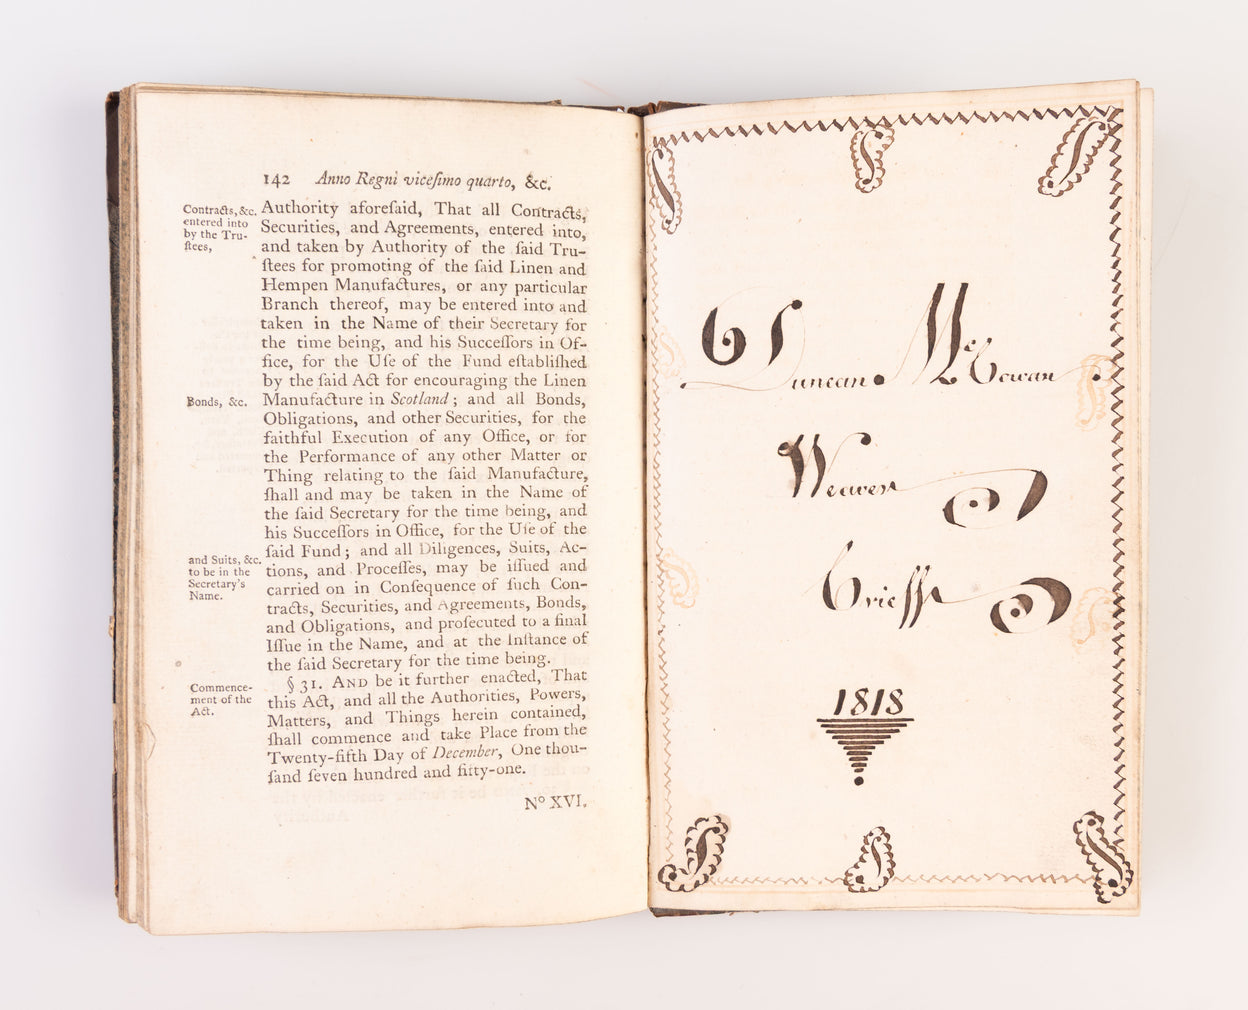 142 Anno Regni viceſimo quarto, &c.
Contracts, &c.
entered into
by the Tru-
ſtees,
Authority aforeſaid, That all Contracts,
Securities, and Agreements, entered into,
and taken by Authority of the ſaid Tru-
ſtees for promoting of the ſaid Linen and
Hempen Manufactures, or any particular
Branch thereof, may be entered into and
taken in the Name of their Secretary for
the time being, and his Succeſſors in Of-
fice, for the Uſe of the Fund eſtabliſhed
by the ſaid Act for encouraging the Linen
Bonds, &c.
Manufacture in Scotland; and all Bonds,
Obligations, and other Securities, for the
faithful Execution of any Office, or for
the Performance of any other Matter or
Thing relating to the ſaid Manufacture,
ſhall and may be taken in the Name of
the ſaid Secretary for the time being, and
his Succeſſors in Office, for the Uſe of the
ſaid Fund; and all Diligences, Suits, Ac-
and Suits, &c.
to be in the
Secretary's
Name.
tions, and Proceſſes, may be iſſued and
carried on in Conſequence of ſuch Con-
tracts, Securities, and Agreements, Bonds,
and Obligations, and proſecuted to a final
Iſſue in the Name, and at the Inſtance of
the ſaid Secretary for the time being.
§ 31. AND be it further enacted, That
Commence-
ment of the
Act.
this Act, and all the Authorities, Powers,
Matters, and Things herein contained,
ſhall commence and take Place from the
Twenty-fifth Day of December, One thou-
ſand ſeven hundred and fifty-one.
Nº XVI.
Duncan McCowan
Weaver
Crieff
1818